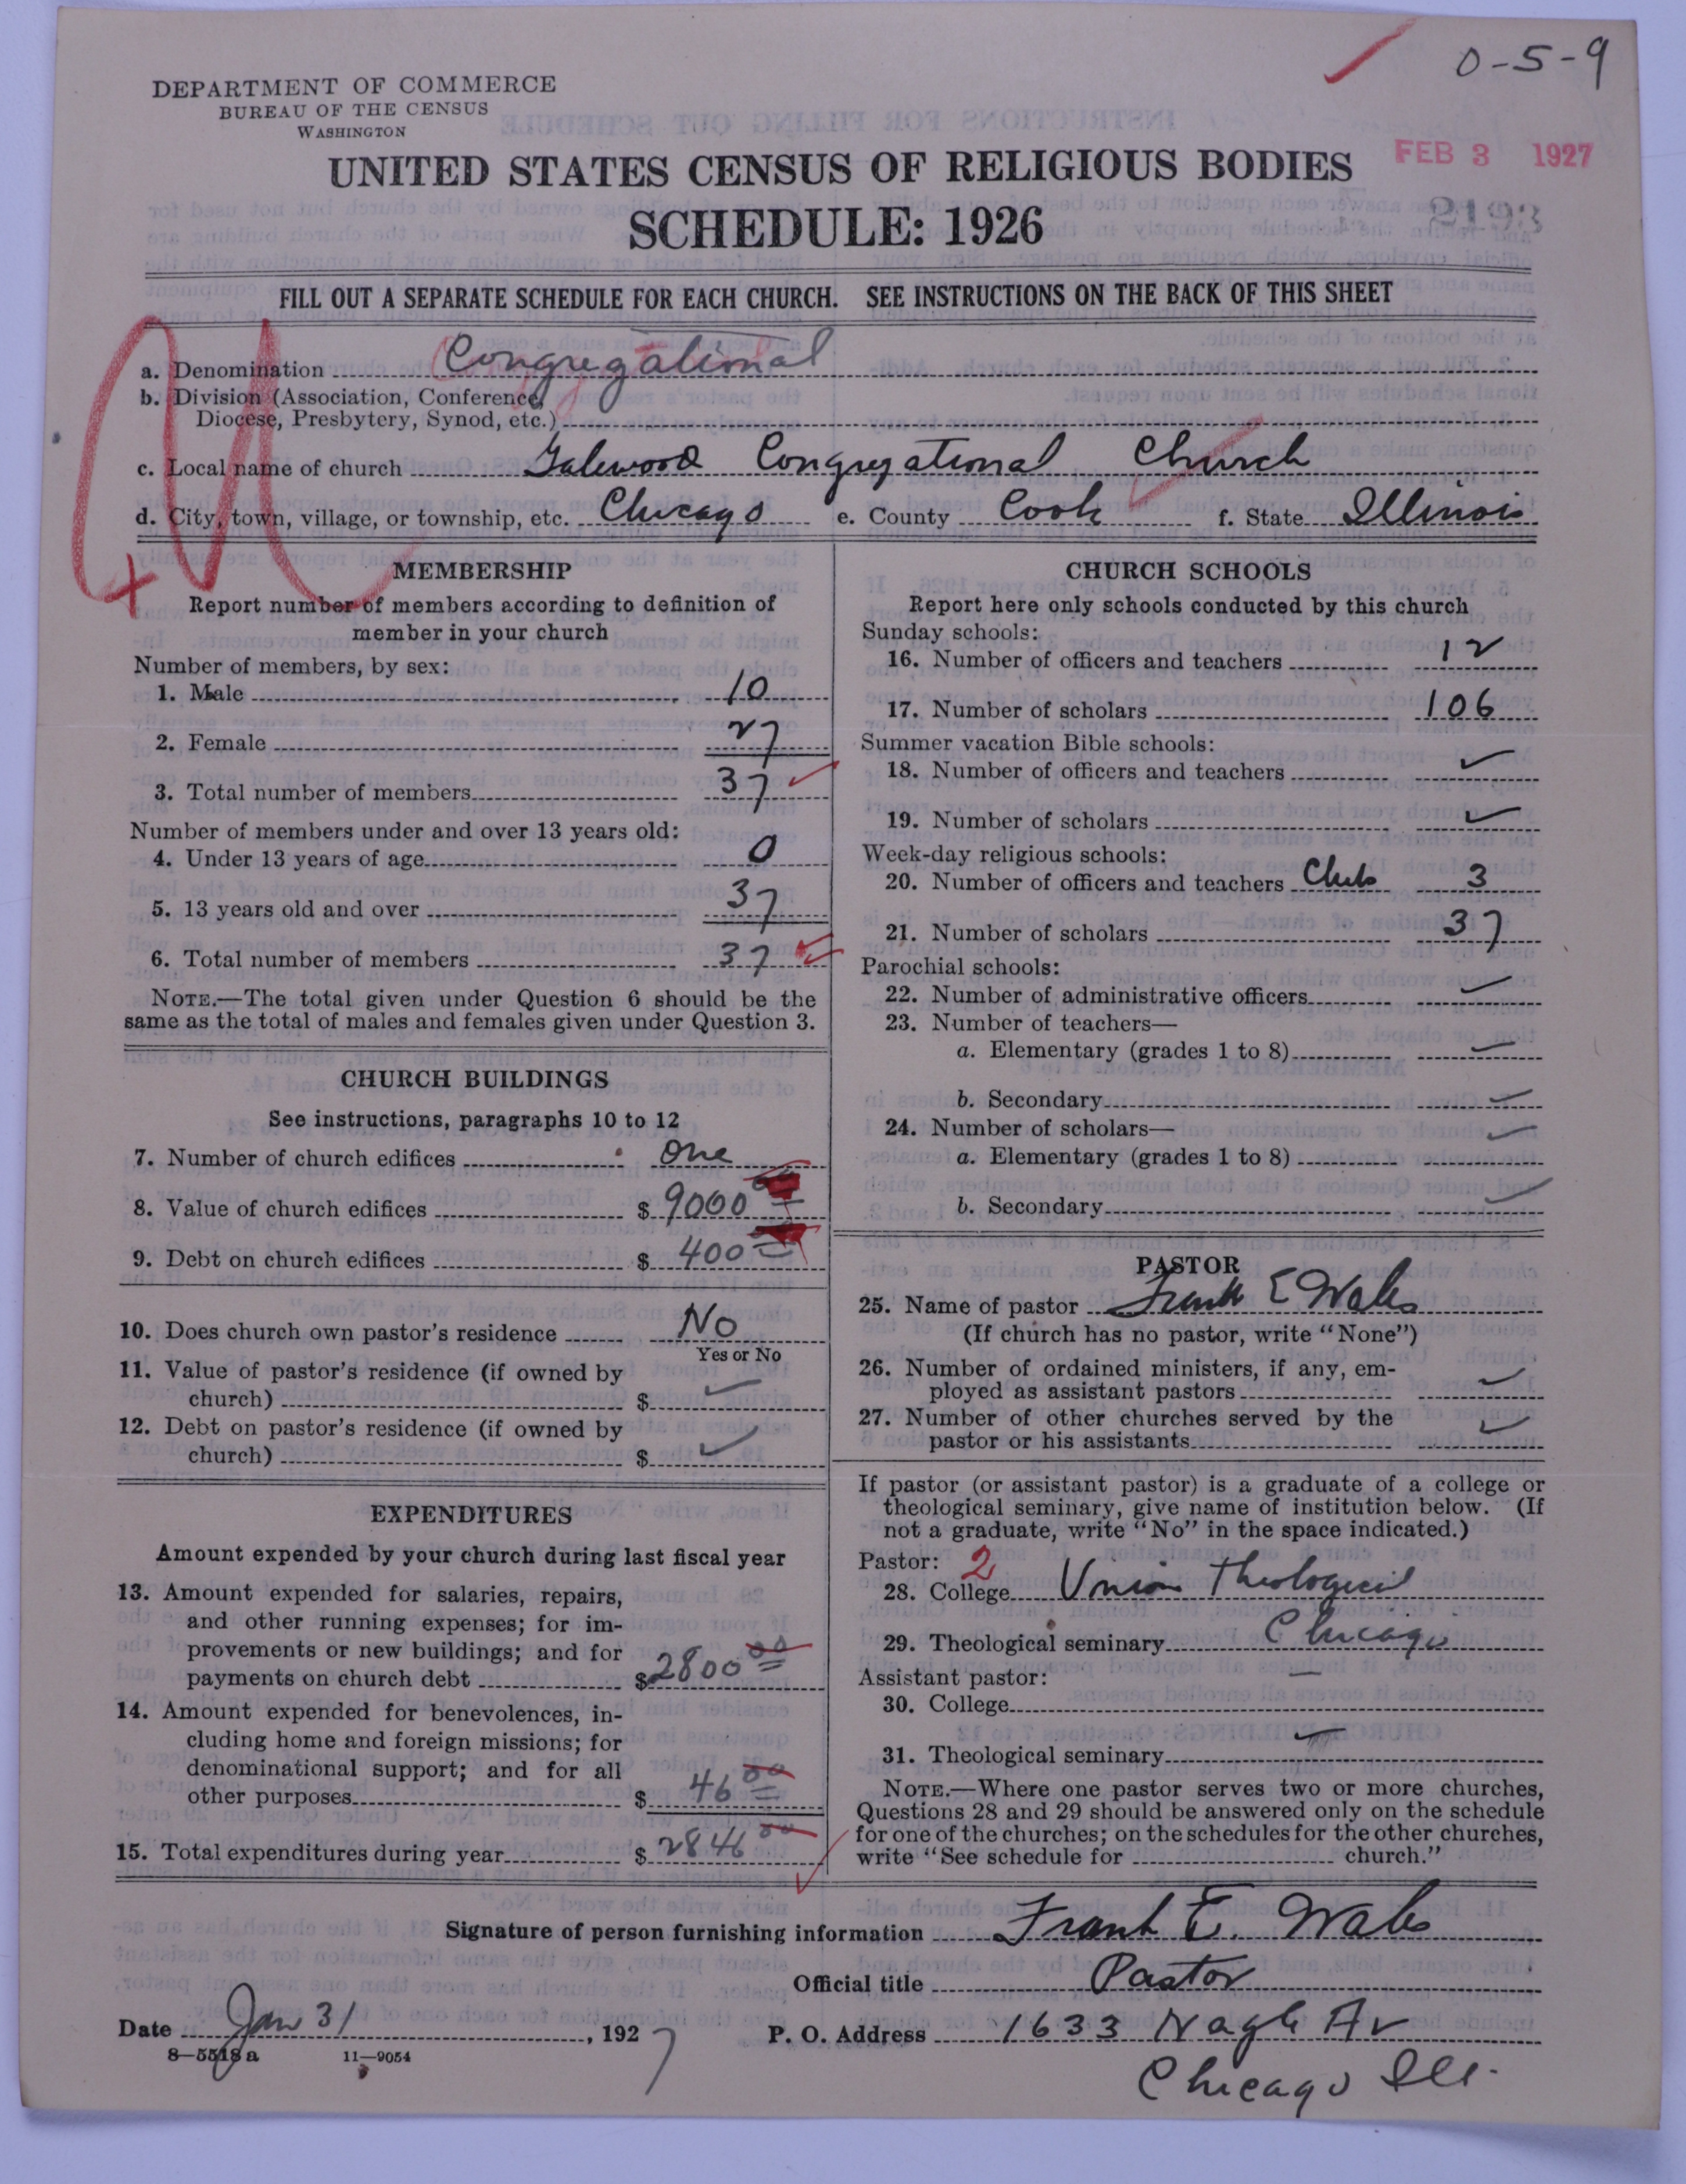 0-5-9
DEPARTMENT OF COMMERCE
BUREAU OF THE CENSUS
WASHINGTON
UNITED STATES CENSUS OF RELIGIOUS BODIES
FEB 3 1927
SCHEDULE: 1926
2193
FILL OUT A SEPARATE SCHEDULE FOR EACH CHURCH. SEE INSTRUCTIONS ON THE BACK OF THIS SHEET
a. Denomination Congregational
b. Division (Association, Conference,
Diocese, Presbytery, Synod, etc.)
c. Local name of church Galewood Congregational Church
d. City, town, village, or township, etc. Chicago e. County Cook f. State Illinois
MEMBERSHIP
Report number of members according to definition of
member in your church
Number of members, by sex:
1. Male 10
2. Female 27
3. Total number of members 37
Number of members under and over 13 years old:
4. Under 13 years of age 0
5. 13 years old and over 37
6. Total number of members 37
NOTE.—The total given under Question 6 should be the
same as the total of males and females given under Question 3.
CHURCH BUILDINGS
See instructions, paragraphs 10 to 12
7. Number of church edifices One
8. Value of church edifices $ 9000
9. Debt on church edifices $ 400
10. Does church own pastor's residence No
Yes or No
11. Value of pastor's residence (if owned by
church) $ ✓
12. Debt on pastor's residence (if owned by
church) $ ✓
EXPENDITURES
Amount expended by your church during last fiscal year
13. Amount expended for salaries, repairs,
and other running expenses; for im-
provements or new buildings; and for
payments on church debt $ 2800 00
14. Amount expended for benevolences, in-
cluding home and foreign missions; for
denominational support; and for all
other purposes $ 46 00
15. Total expenditures during year $ 2846 00
CHURCH SCHOOLS
Report here only schools conducted by this church
Sunday schools:
16. Number of officers and teachers 12
17. Number of scholars 106
Summer vacation Bible schools:
18. Number of officers and teachers ✓
19. Number of scholars ✓
Week-day religious schools:
20. Number of officers and teachers Club 3
21. Number of scholars 37
Parochial schools:
22. Number of administrative officers ✓
23. Number of teachers—
a. Elementary (grades 1 to 8) ✓
b. Secondary ✓
24. Number of scholars— ✓
a. Elementary (grades 1 to 8)
b. Secondary ✓
PASTOR
25. Name of pastor Frank E Wales
(If church has no pastor, write "None")
26. Number of ordained ministers, if any, em-
ployed as assistant pastors ✓
27. Number of other churches served by the
pastor or his assistants ✓
If pastor (or assistant pastor) is a graduate of a college or
theological seminary, give name of institution below. (If
not a graduate, write "No" in the space indicated.)
Pastor: 2
28. College Union Theological
29. Theological seminary Chicago
Assistant pastor: —
30. College
31. Theological seminary
NOTE.—Where one pastor serves two or more churches,
Questions 28 and 29 should be answered only on the schedule
for one of the churches; on the schedules for the other churches,
write "See schedule for church."
Signature of person furnishing information Frank E. Wales
Official title Pastor
Date Jan 31, 1927 P. O. Address 1633 Nagle Av
8—5518 a 11—9054
Chicago Ill.